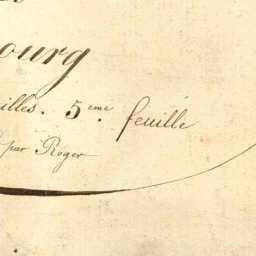 ourg
illes. 5eme. feuille
par Roger